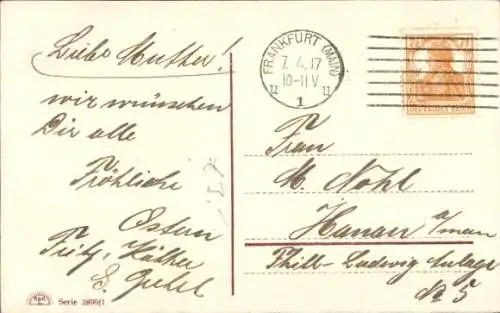 Liebe Mutter!
wir wünschen
Dir alle
Fröhliche
Ostern
Fritz, Käthe
Serie 2899/1
FRANKFURT (MAIN)
7.4.17
10-11 V.
1
Frau
M. Nohl
Hanau a/main
Phill-Ludwig Anlage
No 5